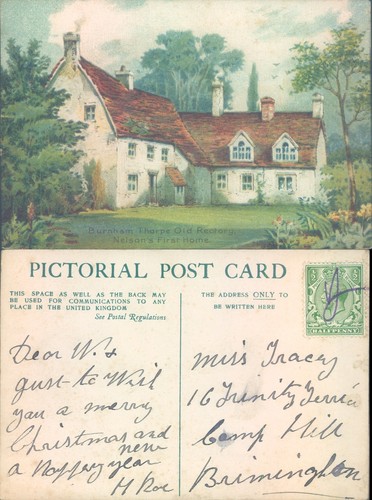 Burnham Thorpe Old Rectory
Nelson's First Home.
PICTORIAL POST CARD
THIS SPACE AS WELL AS THE BACK MAY
BE USED FOR COMMUNICATIONS TO ANY
PLACE IN THE UNITED KINGDOM
See Postal Regulations
THE ADDRESS ONLY TO
BE WRITTEN HERE
HALFPENNY
Dear W. &
Just to Wish
you a merry
Christmas and
new
a Happy year
H Roe
Miss Tracey
16 Trinity Terrice
Camp Hill
Brimingham